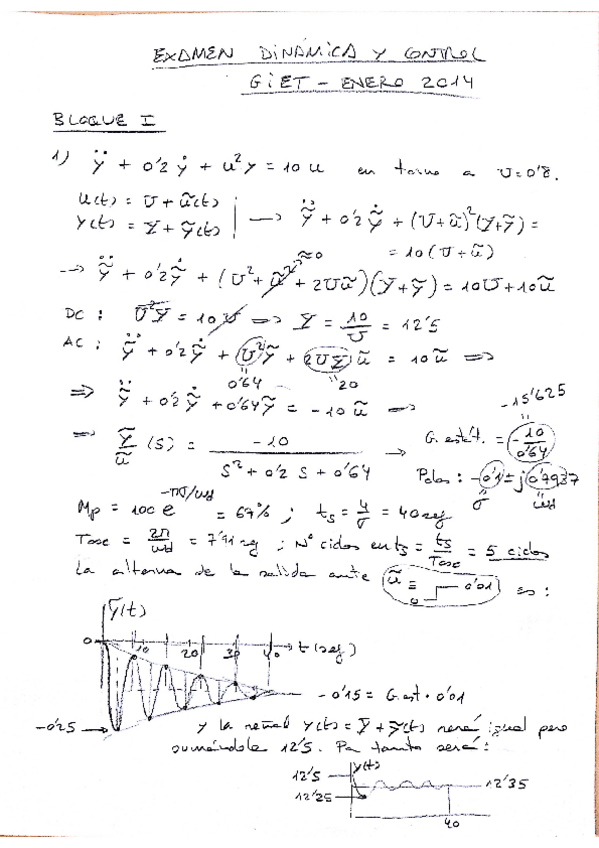 EXAMEN DINÁMICA Y CONTROL
GIET - ENERO 2014
BLOQUE I
1) ÿ + 0'2 ẏ + u² y = 10 u en torno a U=0'8.
u(t) = U + ũ(t)
y(t) = Y + ỹ(t) | → ỹ̈ + 0'2 ỹ̇ + (U+ũ)²(Y+ỹ) =
= 10 (U+ũ)
≈0
→ ỹ̈ + 0'2 ỹ̇ + (U² + ũ² + 2Uũ)(Y+ỹ) = 10U + 10ũ
DC: U²Y = 10 U ⇒ Y = 10/U = 12'5
AC: ỹ̈ + 0'2 ỹ̇ + U² ỹ + 2UY ũ = 10 ũ ⇒
0'64 20
⇒ ỹ̈ + 0'2 ỹ̇ + 0'64 ỹ = -10 ũ ⇒
-15'625
⇒ ỹ/ũ (s) = -10 / (s² + 0'2 s + 0'64) → G. estát. = -10/0'64
Polos: -0'1 ± j 0'7937
σ ωd
Mp = 100 e^(-πσ/ωd) = 67% ; ts = 4/σ = 40 seg
Tosc = 2π/ωd = 7'91 seg ; Nº ciclos en ts = ts/Tosc = 5 ciclos
La alterna de la salida ante ũ = 0 0'01 es:
ỹ(t)
0 10 20 30 40 t (seg)
-0'15 = G.est · 0'01
-0'25 → y la señal y(t) = Y + ỹ(t) será igual pero
sumándole 12'5. Por tanto será:
y(t)
12'5
12'35
12'25
40